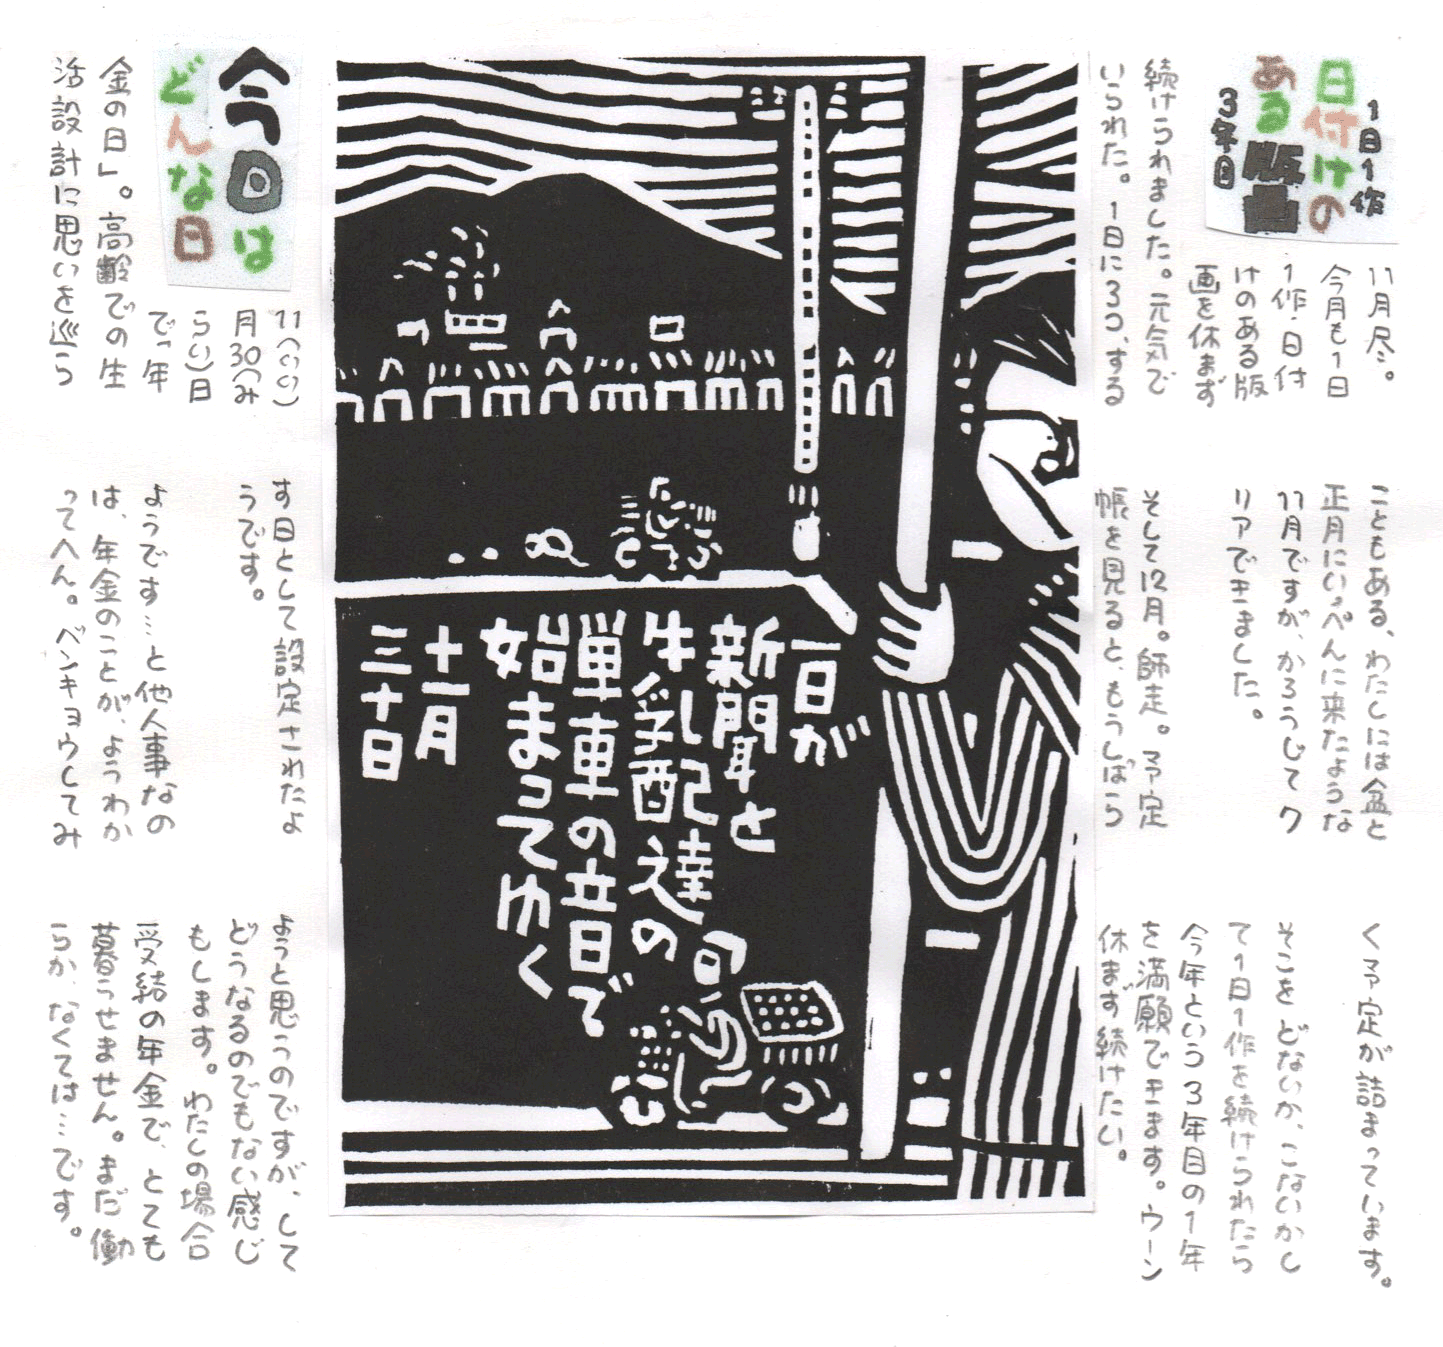 1日1作
日付けの
ある版画
3年目
11月尽。
今月も1日
1作・日付
けのある版
画を休まず
続けられました。元気で
いられた。1日に3つ、する
こともある、わたしには盆と
正月にいっぺんに来たような
11月ですが、かろうじてク
リアできました。
そして12月。師走。予定
帳を見ると、もうしばら
く予定が詰まっています。
そこをどないか、こないかし
て1日1作を続けられたら
今年という3年目の1年
を満願できます。ウーン
休まず続けたい。
一日が
新聞と
牛乳配達の
単車の音で
始まってゆく
十一月
三十日
今日は
どんな日
11(いい)
月30(み
らい)日
で「年
金の日」。高齢での生
活設計に思いを巡ら
す日として設定されたよ
うです。
ようです…と他人事なの
は、年金のことが、ようわか
ってへん。ベンキョウしてみ
ようと思うのですが、して
どうなるのでもない感じ
もします。わたしの場合
受結の年金で、とても
暮らせません。まだ働
らか、なくては…です。